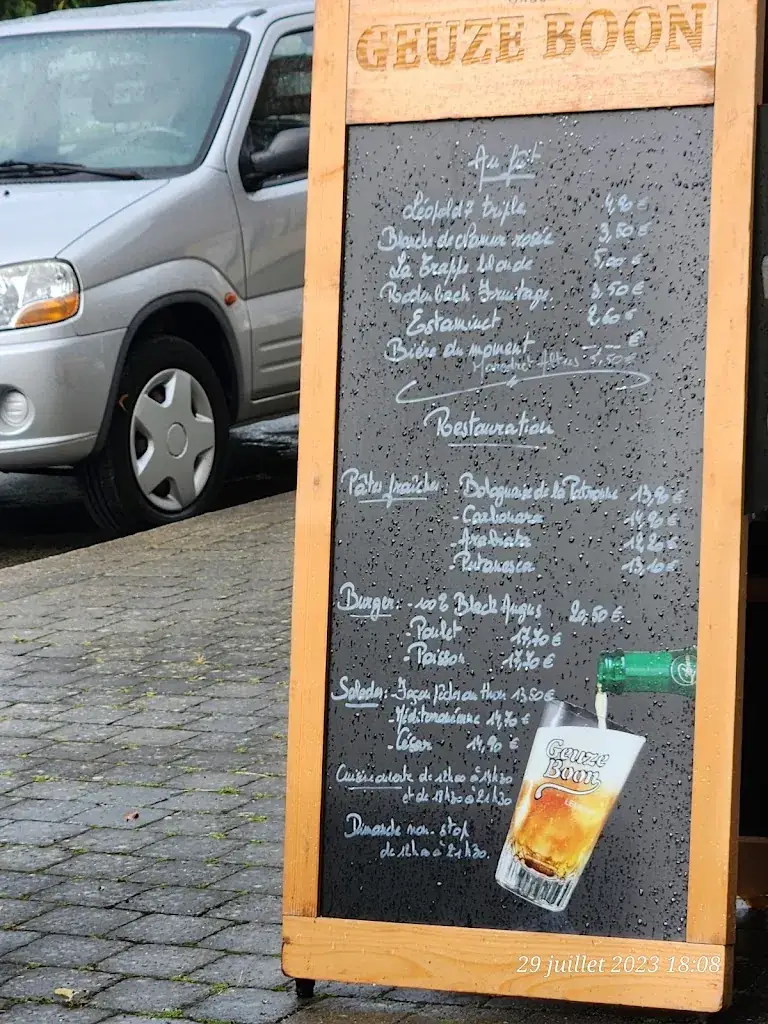 GEUZE BOON
Au fût
Léopold 7 triple 4,20 €
Blanche de Namur rosée 3,50 €
La Trappe blonde 5,00 €
Rodenbach 3,50 €
Estaminet 2,60 €
Bière du moment €
3,50 €
Restauration
Pâtes fraîches Bolognaise de la Patronne 13,20 €
- Carbonara 14,20 €
- Arabiata 12,20 €
- Putanesca 13,10 €
Burger: - 100% Black Angus 20,50 €
- Poulet 17,70 €
- Poisson 17,70 €
Salades: - Façon pêches au thon 13,50 €
- Méditerranéenne 14,70 €
- César 14,90 €
Cuisine ouverte de 12h00 à 14h30
et de 17h30 à 21h30
Dimanche non-stop
de 12h00 à 21h30.
Geuze
Boon
29 juillet 2023 18:08